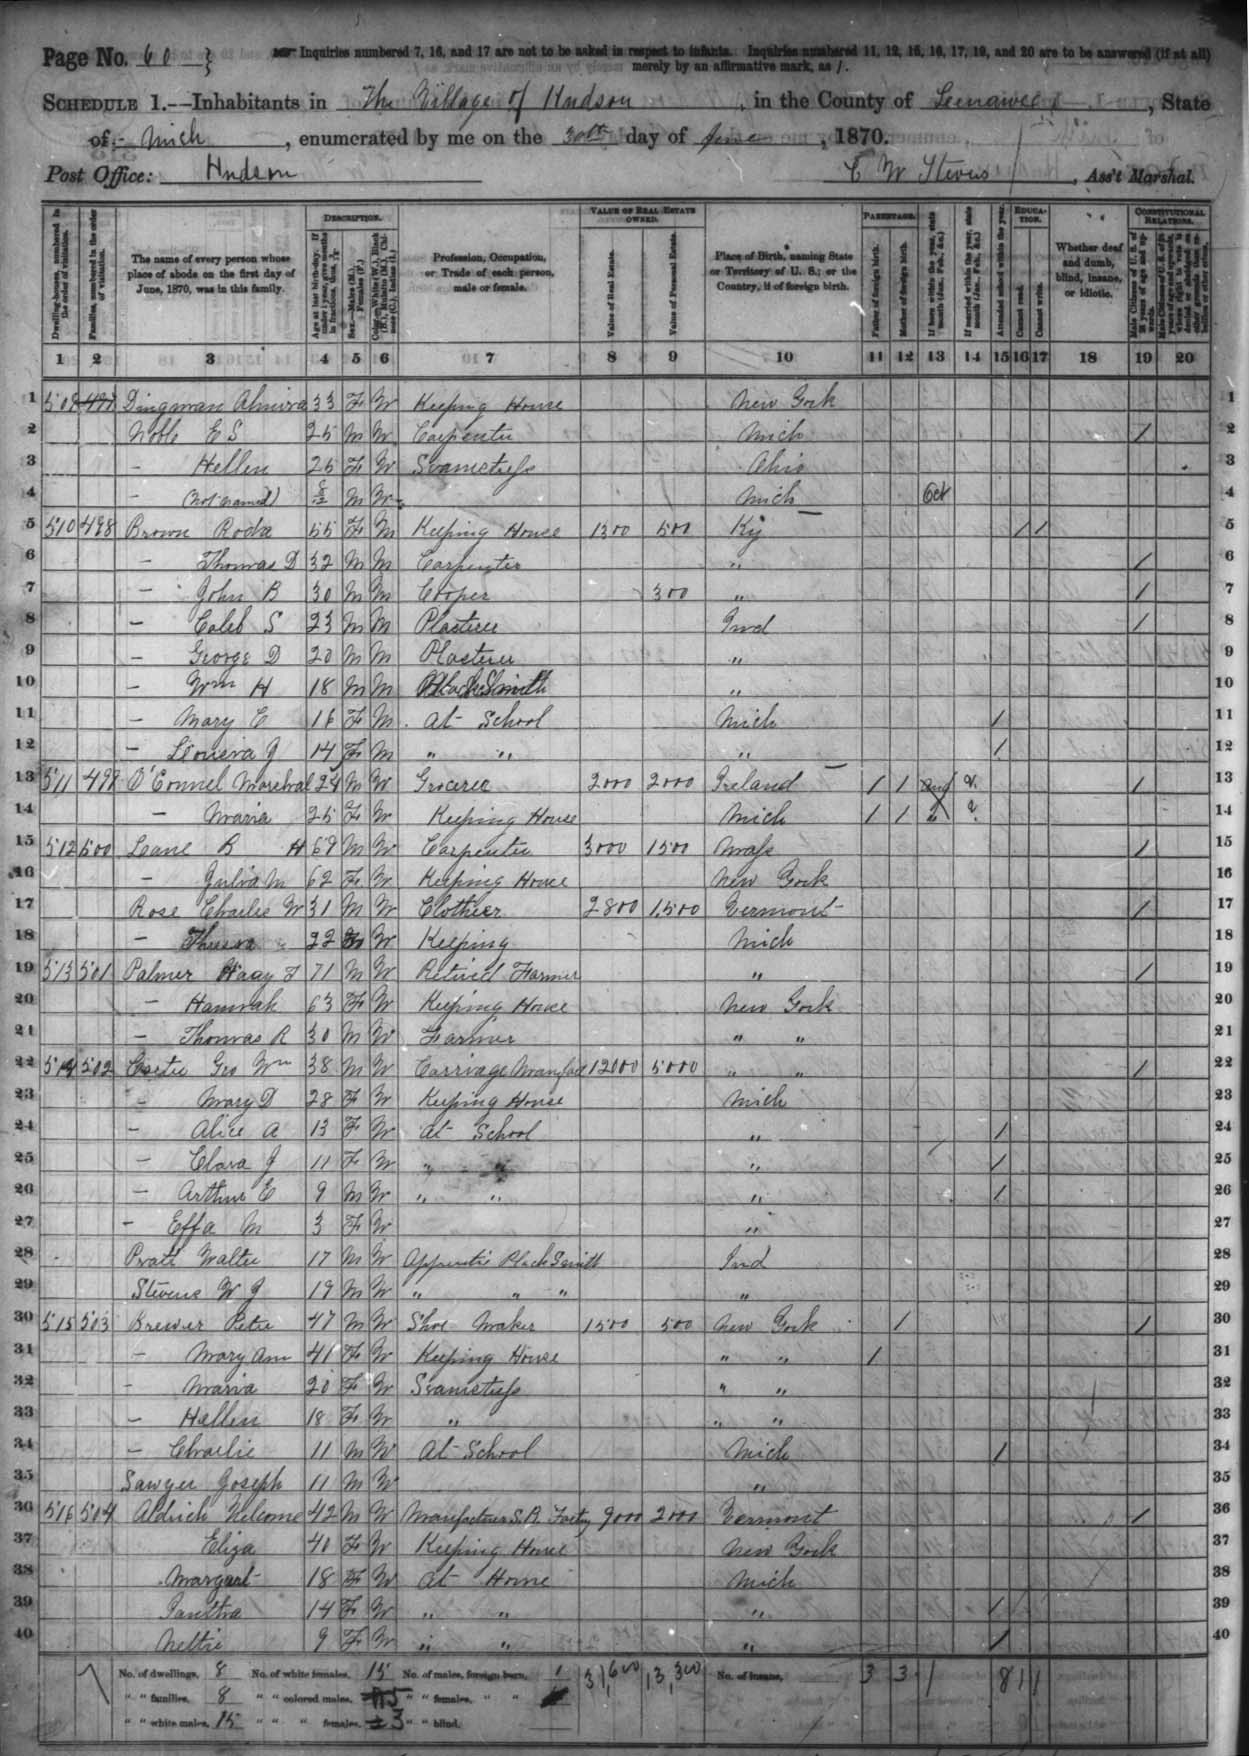 Page No. 60
Inquiries numbered 7, 16, and 17 are not to be asked in respect to infants. Inquiries numbered 11, 12, 15, 16, 17, 19, and 20 are to be answered (if at all)
merely by an affirmative mark, as /.
SCHEDULE 1.—Inhabitants in The Village of Hudson, in the County of Lenawee, State
of Mich, enumerated by me on the 30th day of June, 1870.
Post Office: Hudson
C W Stevens, Ass't Marshal.
DESCRIPTION.
VALUE OF REAL ESTATE OWNED.
PARENTAGE.
EDUCATION.
CONSTITUTIONAL RELATIONS.
Dwelling-houses, numbered in the order of visitation.
Families, numbered in the order of visitation.
The name of every person whose place of abode on the first day of June, 1870, was in this family.
Profession, Occupation, or Trade of each person, male or female.
Value of Real Estate.
Value of Personal Estate.
Place of Birth, naming State or Territory of U. S.; or the Country, if of foreign birth.
Father of foreign birth.
Mother of foreign birth.
Attended school within the year.
Cannot read.
Cannot write.
Whether deaf and dumb, blind, insane, or idiotic.
1 2 3 4 5 6 7 8 9 10 11 12 13 14 15 16 17 18 19 20
1 509 497 Dingman Almira 33 F W Keeping House New York 1
2 Noble E S 25 M W Carpenter Mich / 2
3 – Hellen 25 F W Seamstress Ohio 3
4 – (Not named) 8/12 M W Mich Oct 4
5 510 498 Brown Roda 55 F M Keeping House 1300 500 Ky / / 5
6 – Thomas D 32 M M Carpenter " / 6
7 – John B 30 M M Cooper 300 " / 7
8 – Caleb S 23 M M Plasterer Ind / 8
9 – George D 20 M M Plasterer " 9
10 – Wm H 18 M M Blacksmith " 10
11 – Mary E 16 F M At School Mich / 11
12 – J 14 F M " " " / 12
13 511 499 O'Connel 24 M W Grocer 2000 2000 Ireland / / / 13
14 – Maria 25 F W Keeping House Mich / / 14
15 512 500 Lane B H 69 M W Carpenter 3000 1500 Mass / 15
16 – Julia M 62 F W Keeping House New York 16
17 Rose Charlie W 31 M W Clothier 2800 1,500 Vermont / 17
18 – 22 W Keeping Mich 18
19 513 501 Palmer 71 M W Retired Farmer " / 19
20 – Hannah 63 F W Keeping House New York 20
21 – Thomas R 30 M W Farmer " " 21
22 514 502 Geo Wm 38 M W Carriage Manufact 12000 5000 " " / 22
23 – Mary D 28 F W Keeping House Mich 23
24 – Alice A 13 F W At School " / 24
25 – Clara J 11 F W " " " / 25
26 – Arthur E 9 M W " " " / 26
27 – Effa M 3 F W " 27
28 Pratt Walter 17 M W Apprentice Black Smith Ind 28
29 Stevens W J 19 M W " " " " 29
30 515 503 Brewer Peter 47 M W Shoe Maker 1500 500 New York / / 30
31 – Mary Ann 41 F W Keeping House " " / 31
32 – Maria 20 F W Seamstress " " 32
33 – Hellen 18 F W " " " 33
34 – Charlie 11 M W At School Mich / 34
35 Sawyer Joseph 11 M W " 35
36 516 504 Aldrich Welcome 42 M W Manufacturer S. B. Factory 9000 2000 Vermont / 36
37 Eliza 40 F W Keeping House New York 37
38 Margaret 18 F W At Home Mich 38
39 14 F W " " " / 39
40 Nettie 9 F W " " " / 40
No. of dwellings, 8 No. of white females, 15 No. of males, foreign born, 1 31,600 13,300 No. of insane, 3 3 / 8 1 1
" " families, 8 " " colored males, 5 " " females, " "
" " white males, 15 " " " females, 3 " " blind.